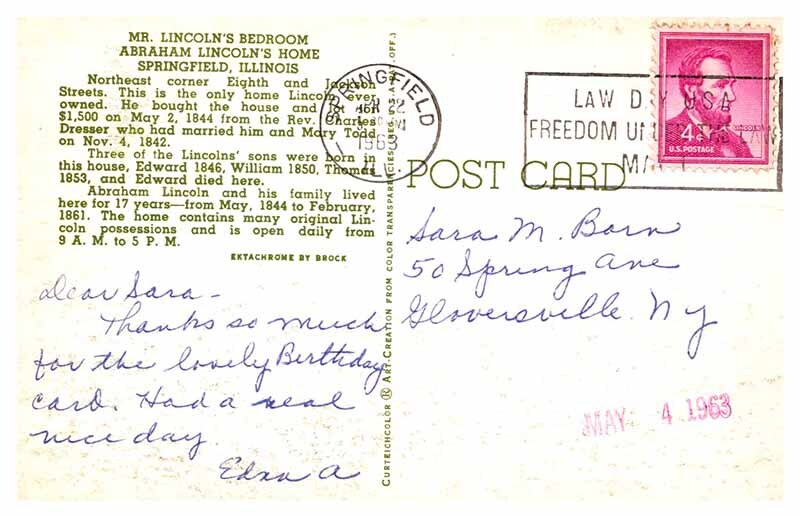 MR. LINCOLN'S BEDROOM
ABRAHAM LINCOLN'S HOME
SPRINGFIELD, ILLINOIS
Northeast corner Eighth and Jackson
Streets. This is the only home Lincoln ever
owned. He bought the house and lot for
$1,500 on May 2, 1844 from the Rev. Charles
Dresser who had married him and Mary Todd
on Nov. 4, 1842.
Three of the Lincolns' sons were born in
this house, Edward 1846, William 1850, Thomas
1853, and Edward died here.
Abraham Lincoln and his family lived
here for 17 years—from May, 1844 to February,
1861. The home contains many original Lin-
coln possessions and is open daily from
9 A. M. to 5 P. M.
EKTACHROME BY BROCK
Dear Sara -
Thanks so much
for the lovely Birthday
card. Had a real
nice day.
Edna A
CURTEICHCOLOR ® ART-CREATION FROM COLOR TRANSPARENCIES (REG. U.S.A. PAT. OFF.)
SPRINGFIELD
22
PM
1963
ILL.
LAW DAY USA
FREEDOM UNDER THE LAW
MAY 1
4¢
LINCOLN
U.S. POSTAGE
POST CARD
Sara M. Born
50 Spring Ave
Gloversville. Ny
MAY 4 1963